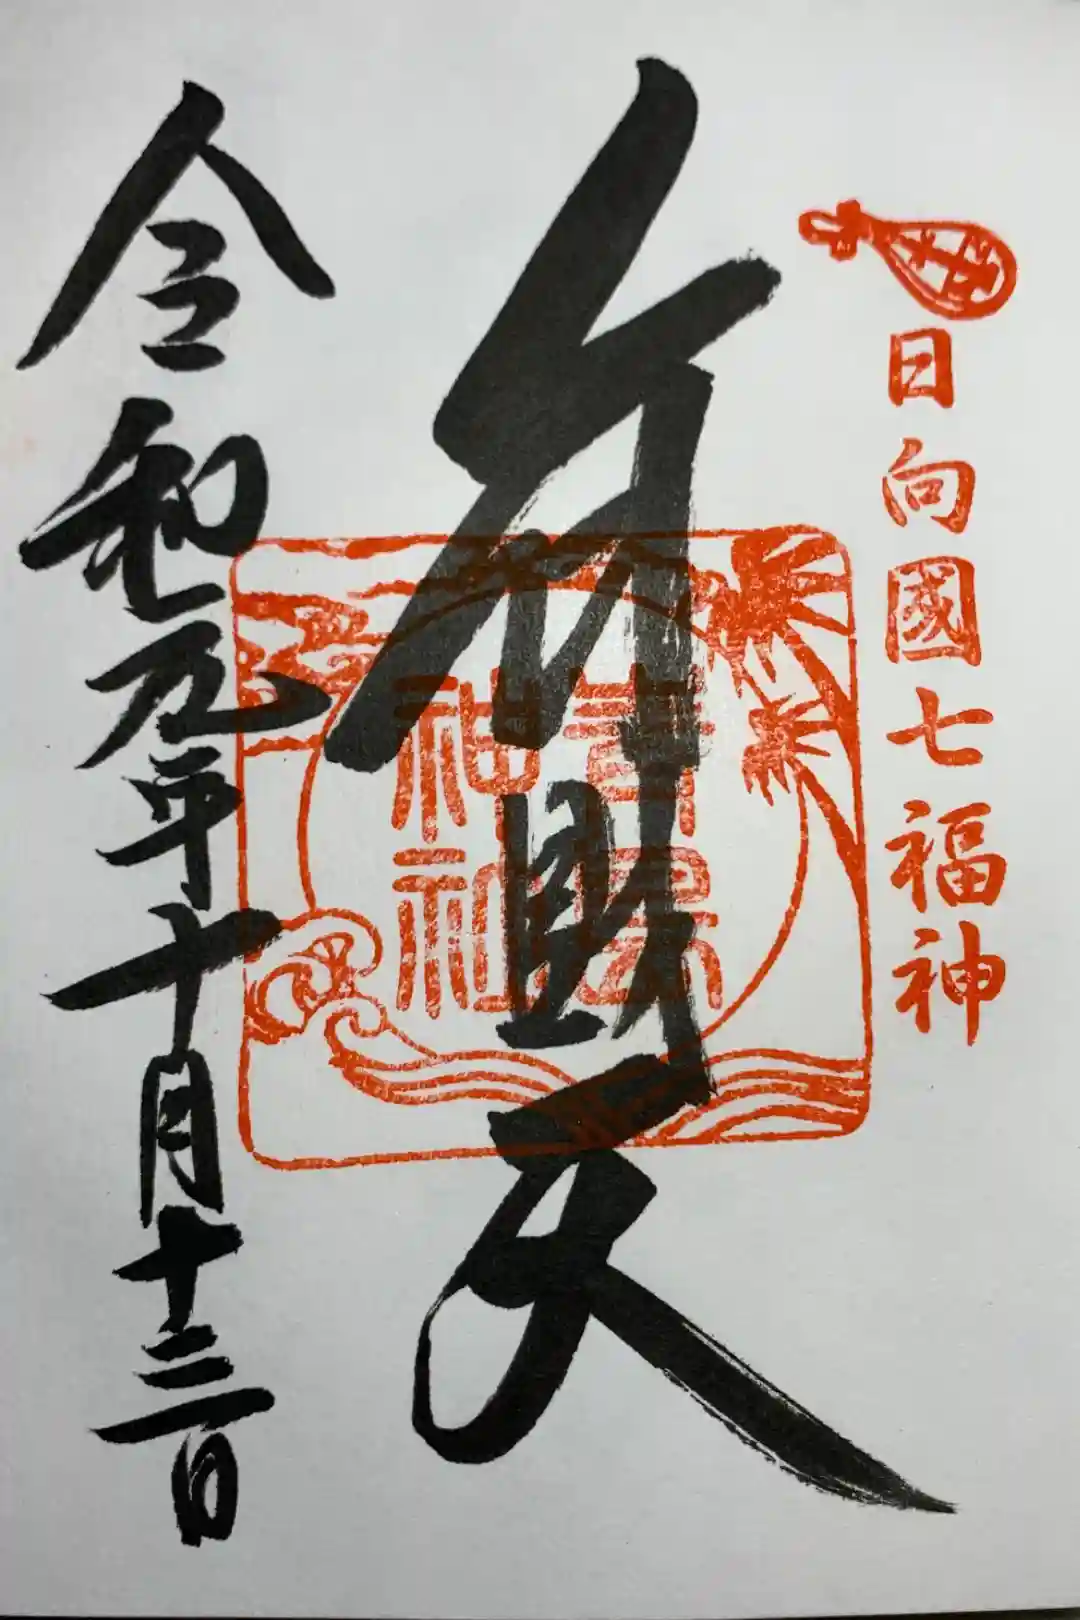 日向國七福神
弁財天
青島
神社
令和元年十月十三日